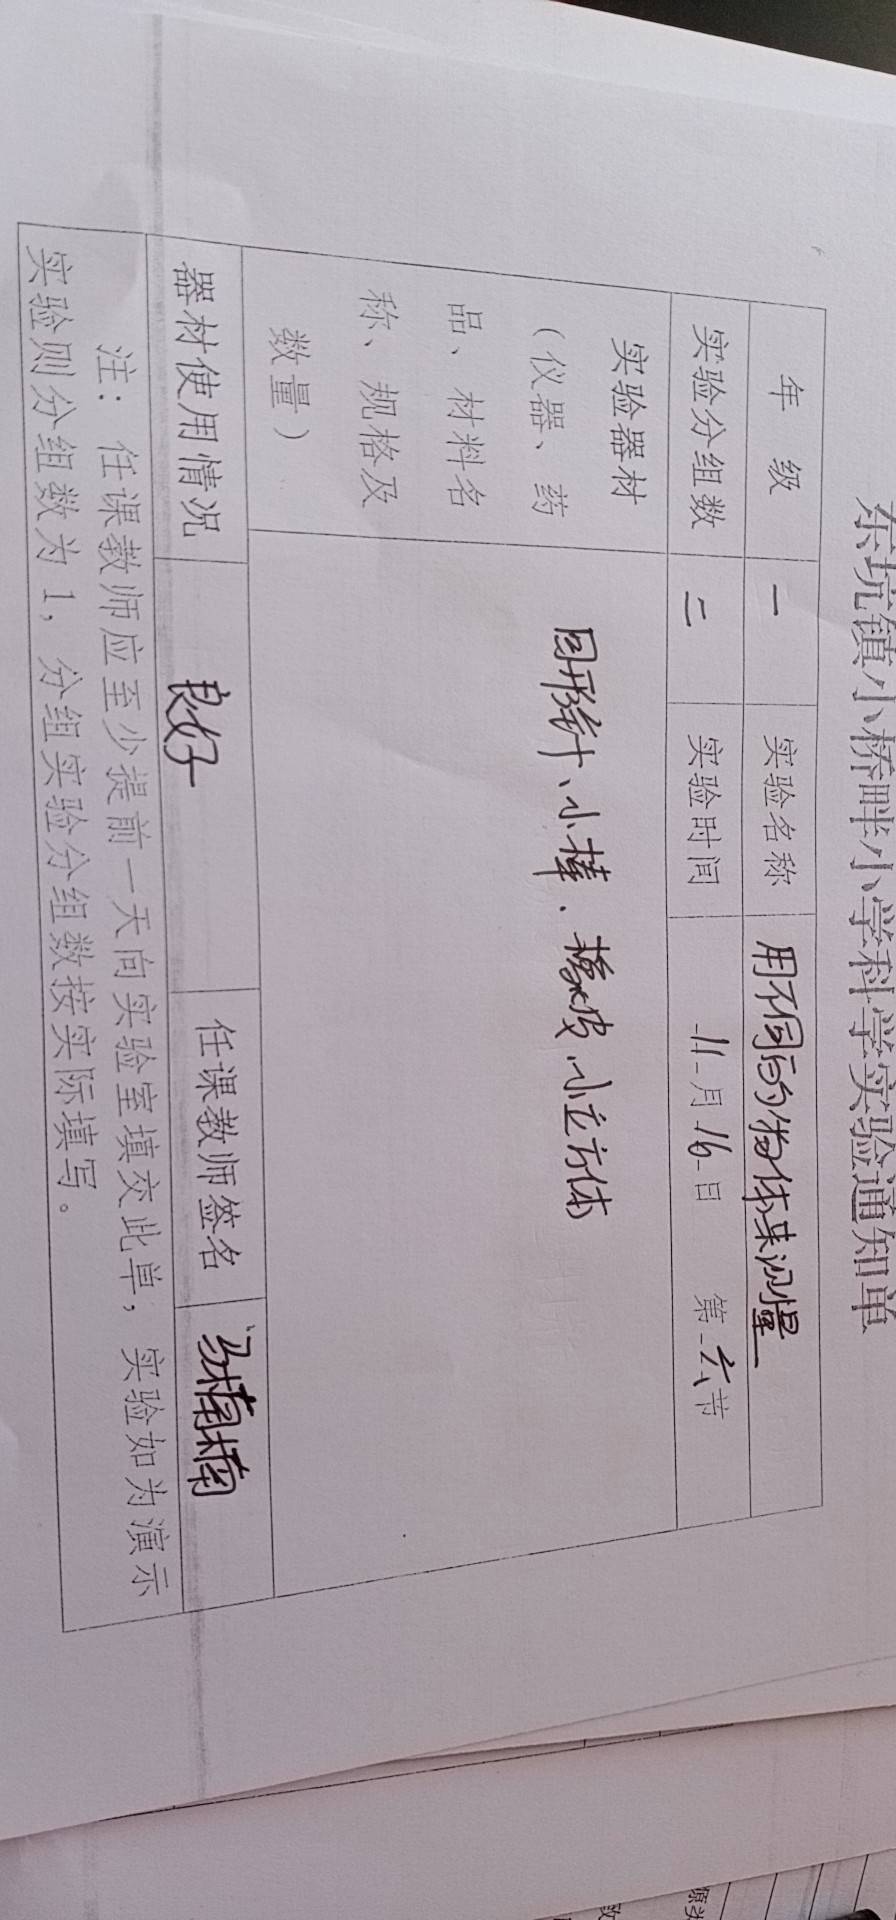 东坑镇小桥畔小学科学实验通知单
年 级 一 实验名称 用不同的物体来测量
实验分组数 二 实验时间 11月16日 第六节
实验器材
（仪器、药
品、材料名
称、规格及
数量）
回形针、小棒、橡皮、小立方体
器材使用情况 良好 任课教师签名
注：任课教师应至少提前一天向实验室填交此单，实验如为演示
实验则分组数为1，分组实验分组数按实际填写。